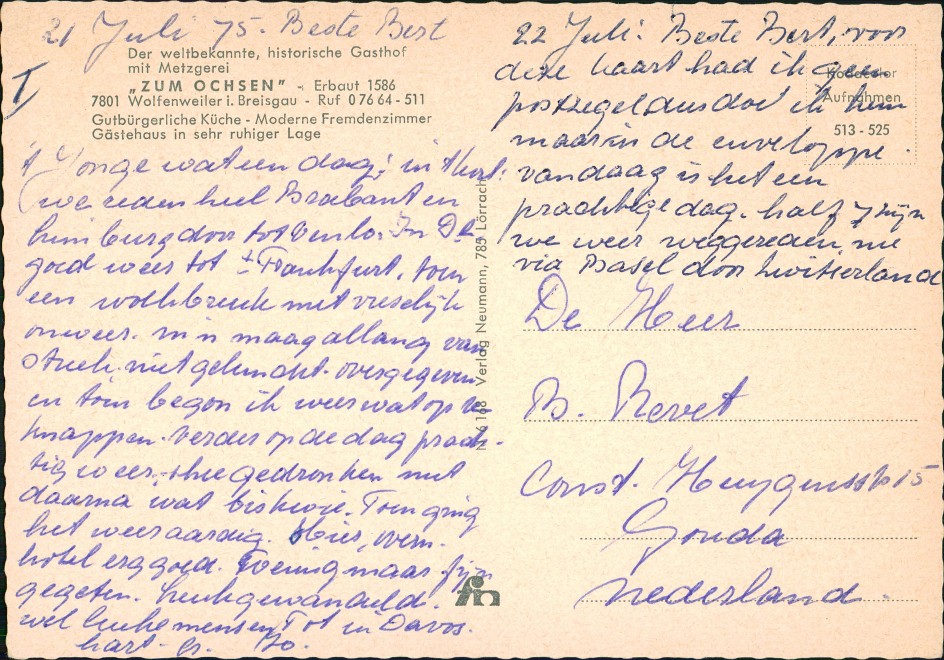 21 Juli 75. Beste Bert
Der weltbekannte, historische Gasthof
mit Metzgerei
„ZUM OCHSEN" - Erbaut 1586
7801 Wolfenweiler i. Breisgau - Ruf 0 76 64 - 511
Gutbürgerliche Küche - Moderne Fremdenzimmer
Gästehaus in sehr ruhiger Lage
Jonge wat een dag; in 't kort:
we reden heel Brabant en
Limburg door tot Venlo. In D
goed weer tot ± Frankfurt. toen
een wolkbreuk met vreselijk
onweer. m'n maag allang van
streek. niet geluncht. overgegeven
en toen begon ik weer wat op te
knappen. verder op de dag prach-
tig weer, thee gedronken met
daarna wat biskwie. Toen ging
het weer aardig. Hier, overn.
hotel erg goed. weinig maar fijn
gegeten. Leuk gewandeld.
wel leuke mensen. Tot in Davos.
hart. gr. Jo.
22 Juli: Beste Bert, voor
deze kaart had ik geen
postzegel dus doe ik hem
maar in de enveloppe.
vandaag is het een
prachtige dag. half 7 zijn
we weer weggereden nu
via Basel door Zwitserland
Kodacolor
Aufnahmen
513 - 525
De Heer
B. Revet
Const. Huygensstr 15
Gouda
Nederland.
Verlag Neumann, 785 Lörrach
fn